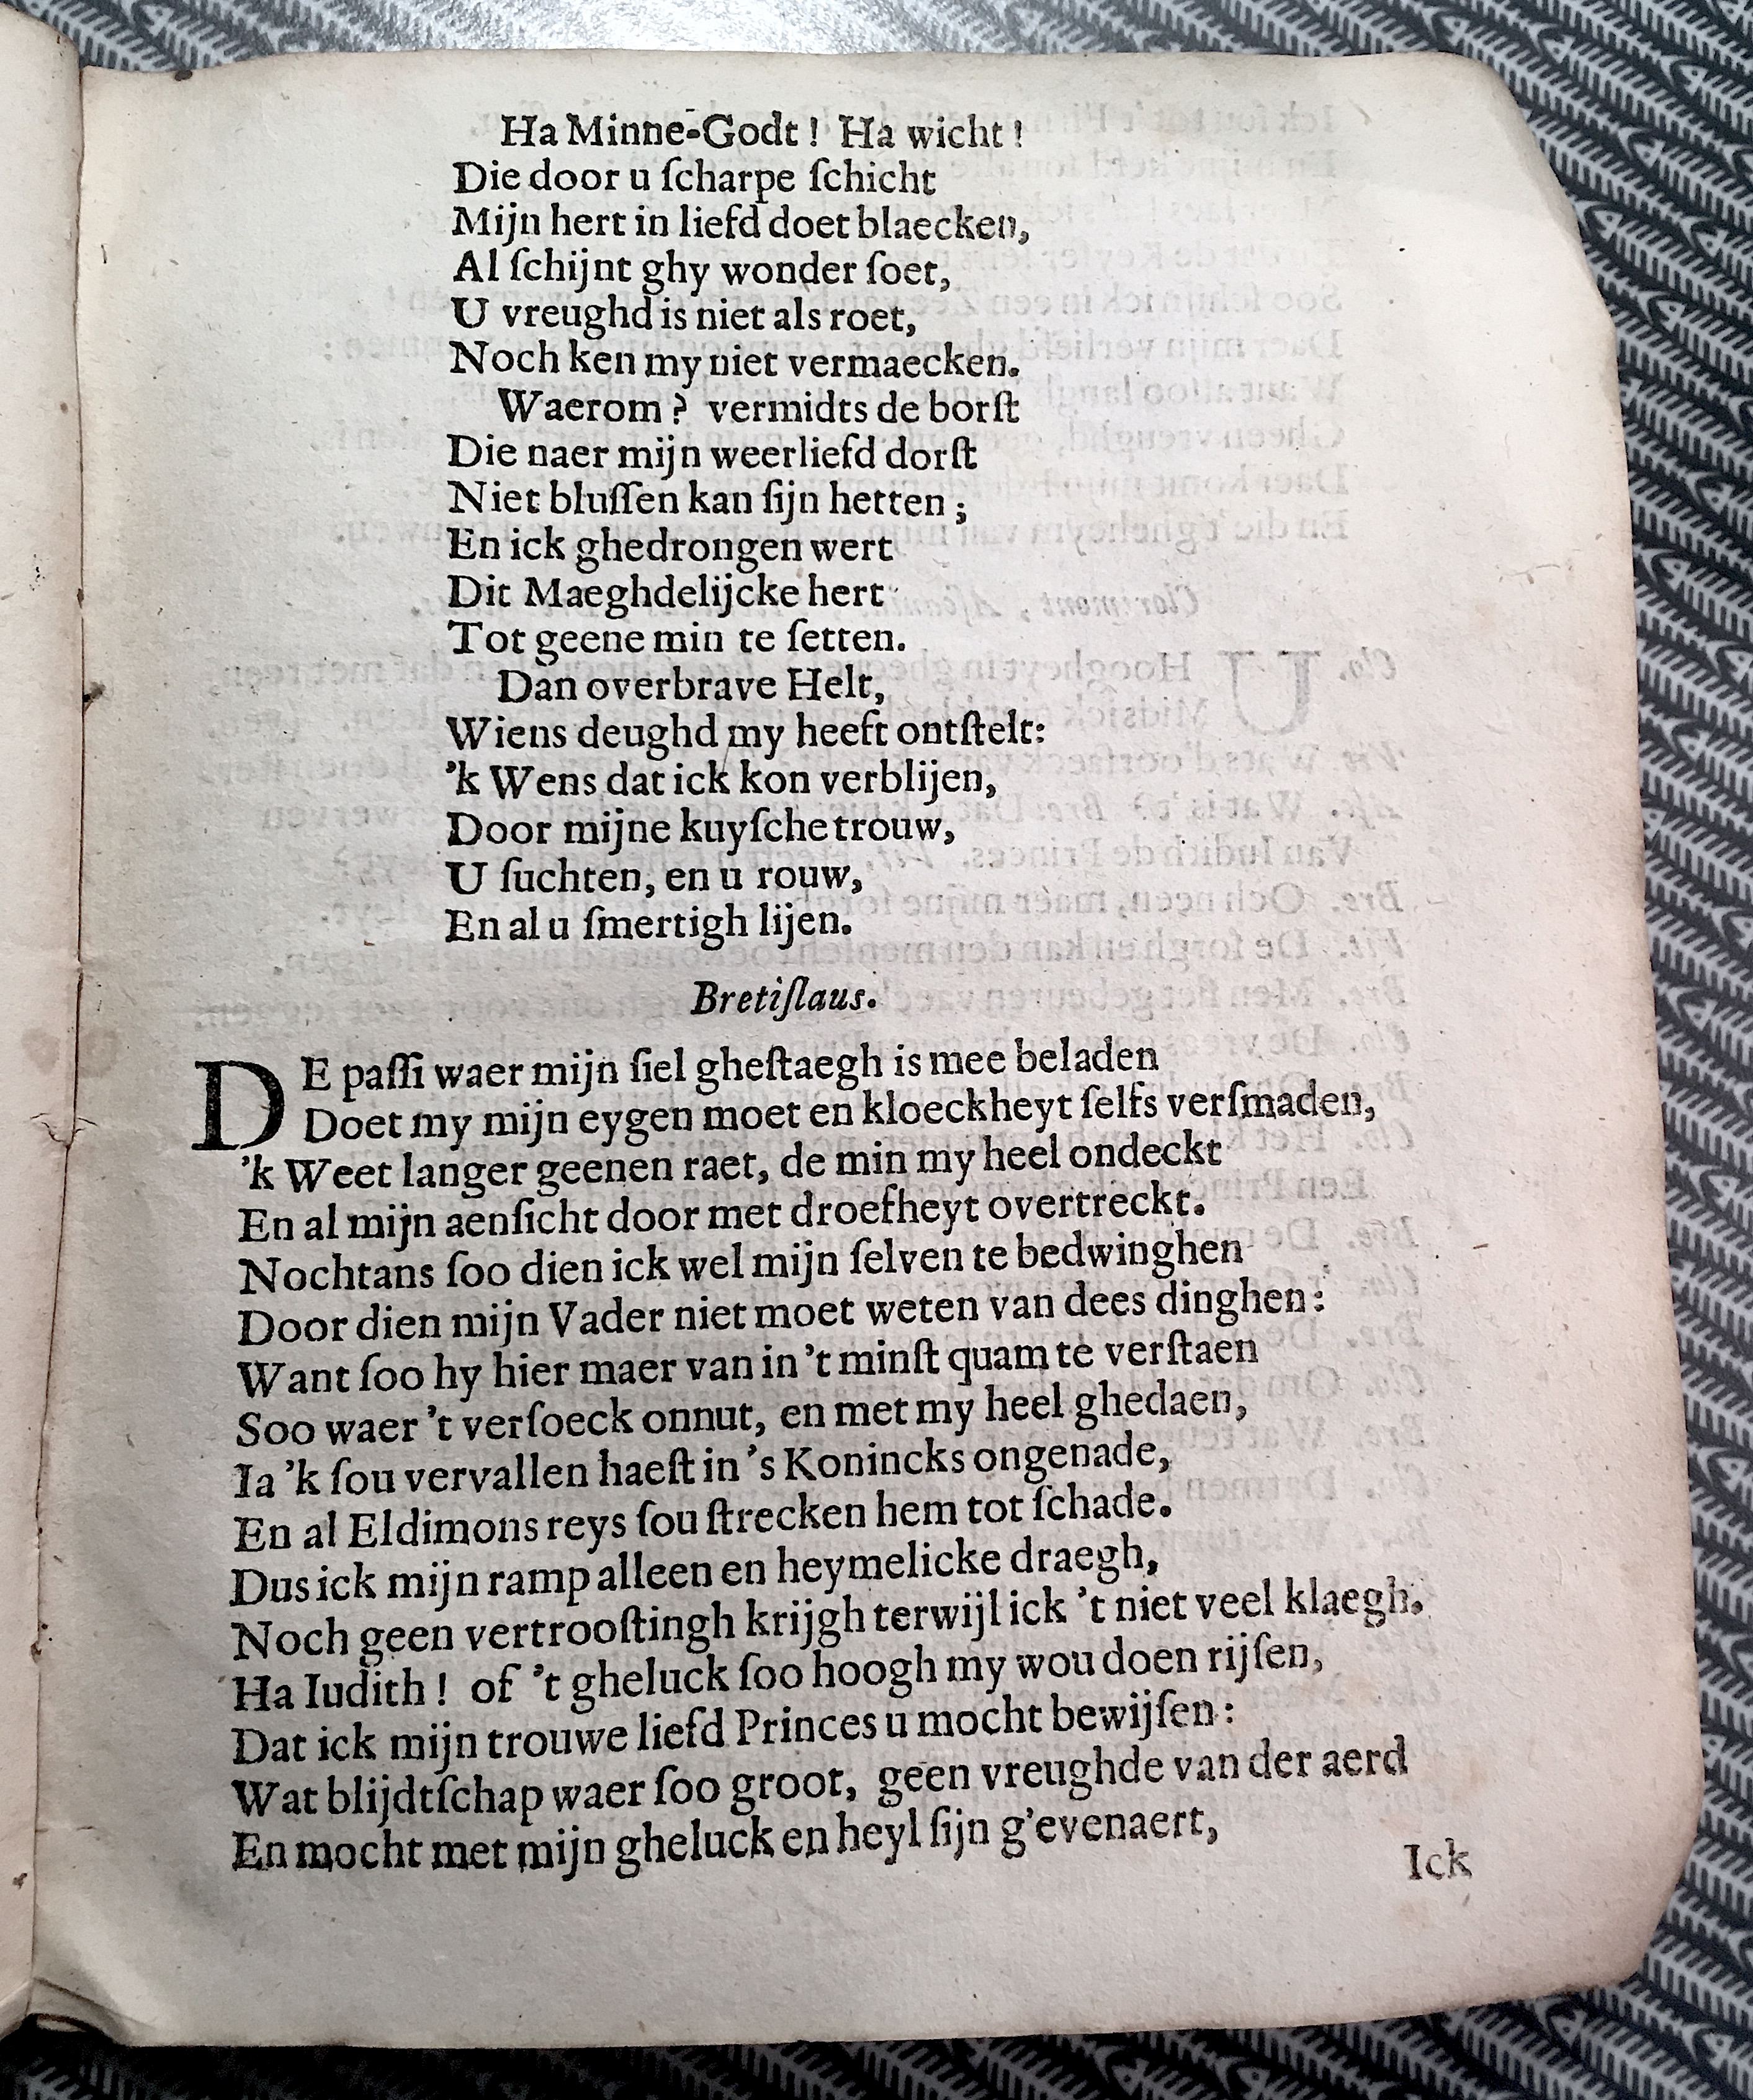 Ha Minne-Godt! Ha wicht!
Die door u ſcharpe ſchicht
Mijn hert in liefd doet blaecken,
Al ſchijnt ghy wonder ſoet,
U vreughd is niet als roet,
Noch ken my niet vermaecken.
Waerom? vermidts de borſt
Die naer mijn weerliefd dorſt
Niet bluſſen kan ſijn hetten;
En ick ghedrongen wert
Dit Maeghdelijcke hert
Tot geene min te ſetten.
Dan overbrave Helt,
Wiens deughd my heeft ontſtelt:
'k Wens dat ick kon verblijen,
Door mijne kuyſche trouw,
U ſuchten, en u rouw,
En al u ſmertigh lijen.
Bretiſlaus.
DE paſſi waer mijn ſiel gheſtaegh is mee beladen
Doet my mijn eygen moet en kloeckheyt ſelfs verſmaden,
'k Weet langer geenen raet, de min my heel ondeckt
En al mijn aenſicht door met droefheyt overtreckt.
Nochtans ſoo dien ick wel mijn ſelven te bedwinghen
Door dien mijn Vader niet moet weten van dees dinghen:
Want ſoo hy hier maer van in 't minſt quam te verſtaen
Soo waer 't verſoeck onnut, en met my heel ghedaen,
Ia 'k ſou vervallen haeſt in 's Konincks ongenade,
En al Eldimons reys ſou ſtrecken hem tot ſchade.
Dus ick mijn ramp alleen en heymelicke draegh,
Noch geen vertrooſtingh krijgh terwijl ick 't niet veel klaegh.
Ha Iudith! of 't gheluck ſoo hoogh my wou doen rijſen,
Dat ick mijn trouwe liefd Princes u mocht bewijſen:
Wat blijdtſchap waer ſoo groot, geen vreughde van der aerd
En mocht met mijn gheluck en heyl ſijn g'evenaert,
Ick